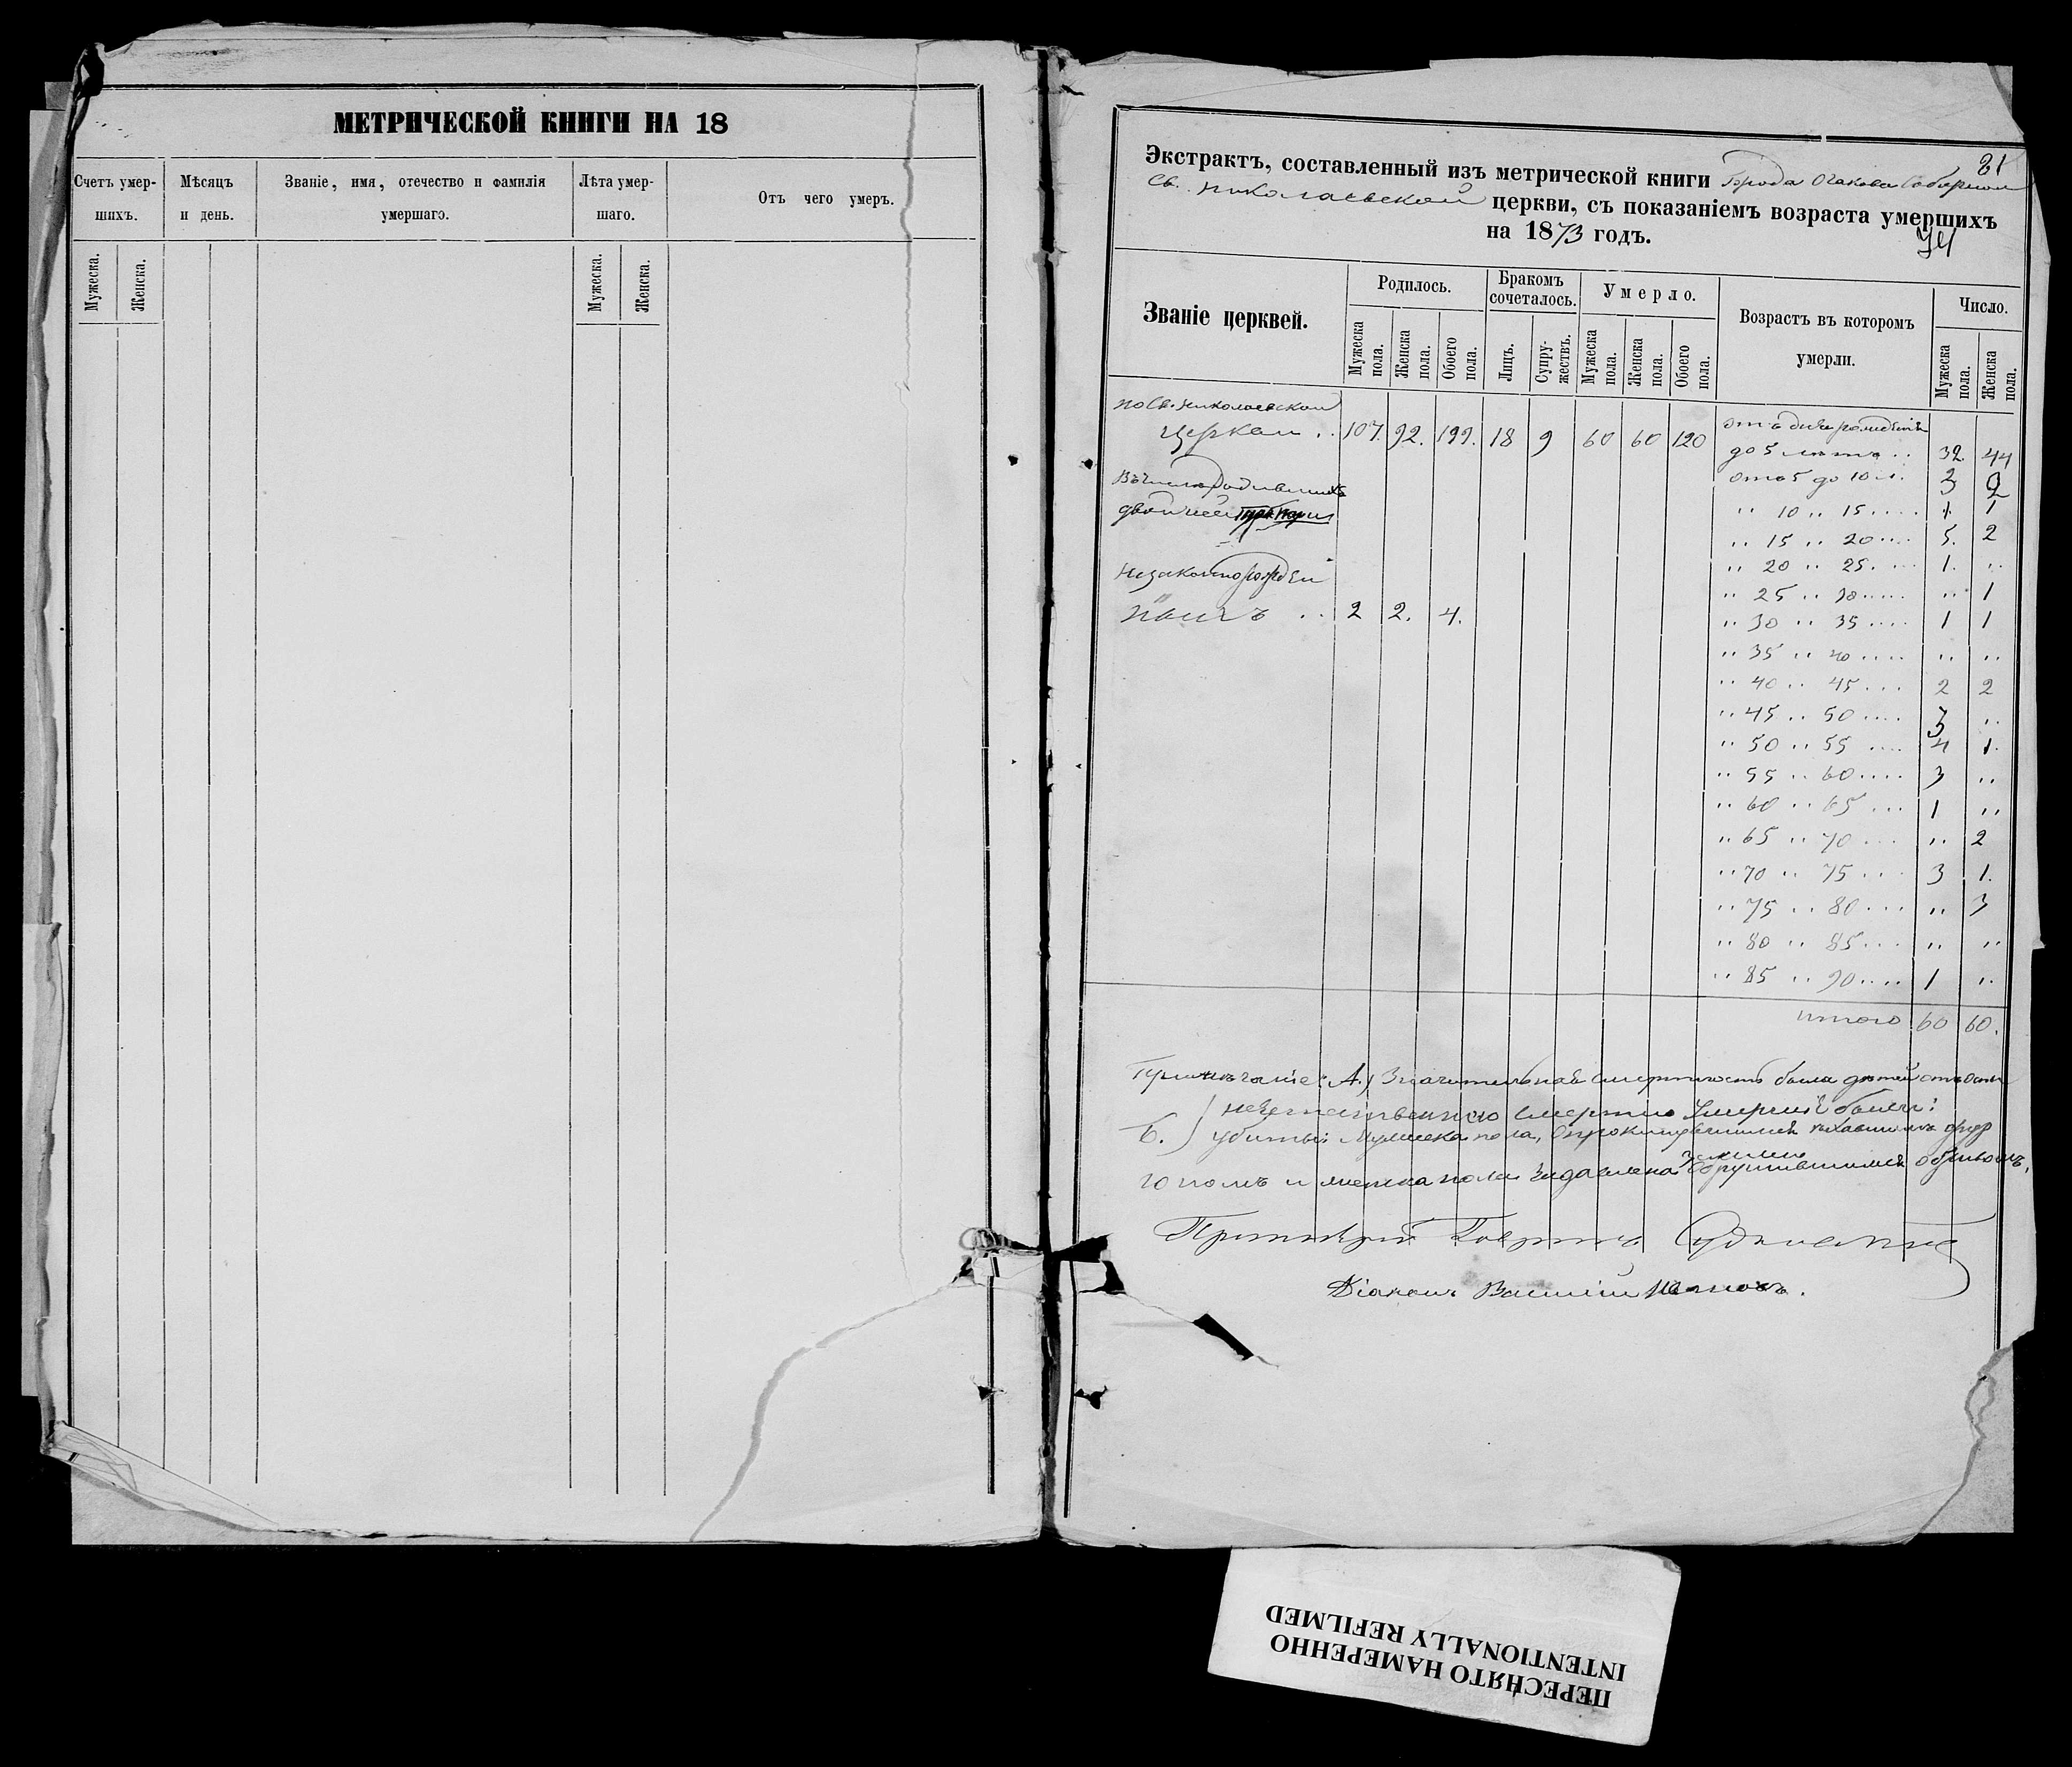 МЕТРИЧЕСКОЙ КНИГИ НА 18
Счетъ умер-
шихъ.
Мѣсяцъ
и день.
Званіе, имя, отечество и фамилія
умершаго.
Лѣта умер-
шаго.
Отъ чего умеръ.
Мужеска.
Женска.
Мужеска.
Женска.
81
Экстрактъ, составленный изъ метрической книги Города Очакова Соборной
Св. Николаевской церкви, съ показаніемъ возраста умершихъ
на 1873 годъ.
74
Званіе церквей.
Родилось.
Бракомъ
сочеталось.
Умерло.
Возрастъ въ которомъ
умерли.
Число.
Мужеска пола.
Женска пола.
Обоего пола.
Лицъ.
Супру-
жествъ.
Мужеска пола.
Женска пола.
Обоего пола.
Мужеска пола.
Женска пола.
по Св. Николаевской
Церкви .. 107. 92. 199. 18 9 60 60 120
отъ дня рожденія
до 5 лѣтъ .. 32. 44
отъ 5 до 10 л. 3 2
Въ числѣ родившихъ
двойней
" 10 " 15 .... 1. 1
" 15 " 20 .... 5. 2
" 20 " 25. ... 1. "
незаконнорожден
ныхъ .. 2 2. 4.
" 25 " 30 ..... " 1
" 30 " 35 .... 1 1
" 35 " 40 .... " "
" 40 " 45 ... 2 2
" 45 " 50 .... 3 "
" 50 " 55 .... 4 1.
" 55 " 60 .... 3 "
" 60 " 65 ... 1 "
" 65 " 70 ... " 2
" 70 " 75 ... 3 1.
" 75 " 80 ... " 3
" 80 " 85 ... " "
" 85 " 90 .... 1 "
итого 60 60.
Примѣчаніе: А.) Значительная смертность была дѣтей отъ оспы
Б.) неестественною смертію умершіе были:
убиты: мужеска пола, опрокинувшимся
и женска пола задавлена землею обрушившимся обрывомъ.
Протоіерей Гавріилъ Судковскій
Діаконъ Василій
ПЕРЕСНЯТО НАМЕРЕННО
INTENTIONALLY REFILMED